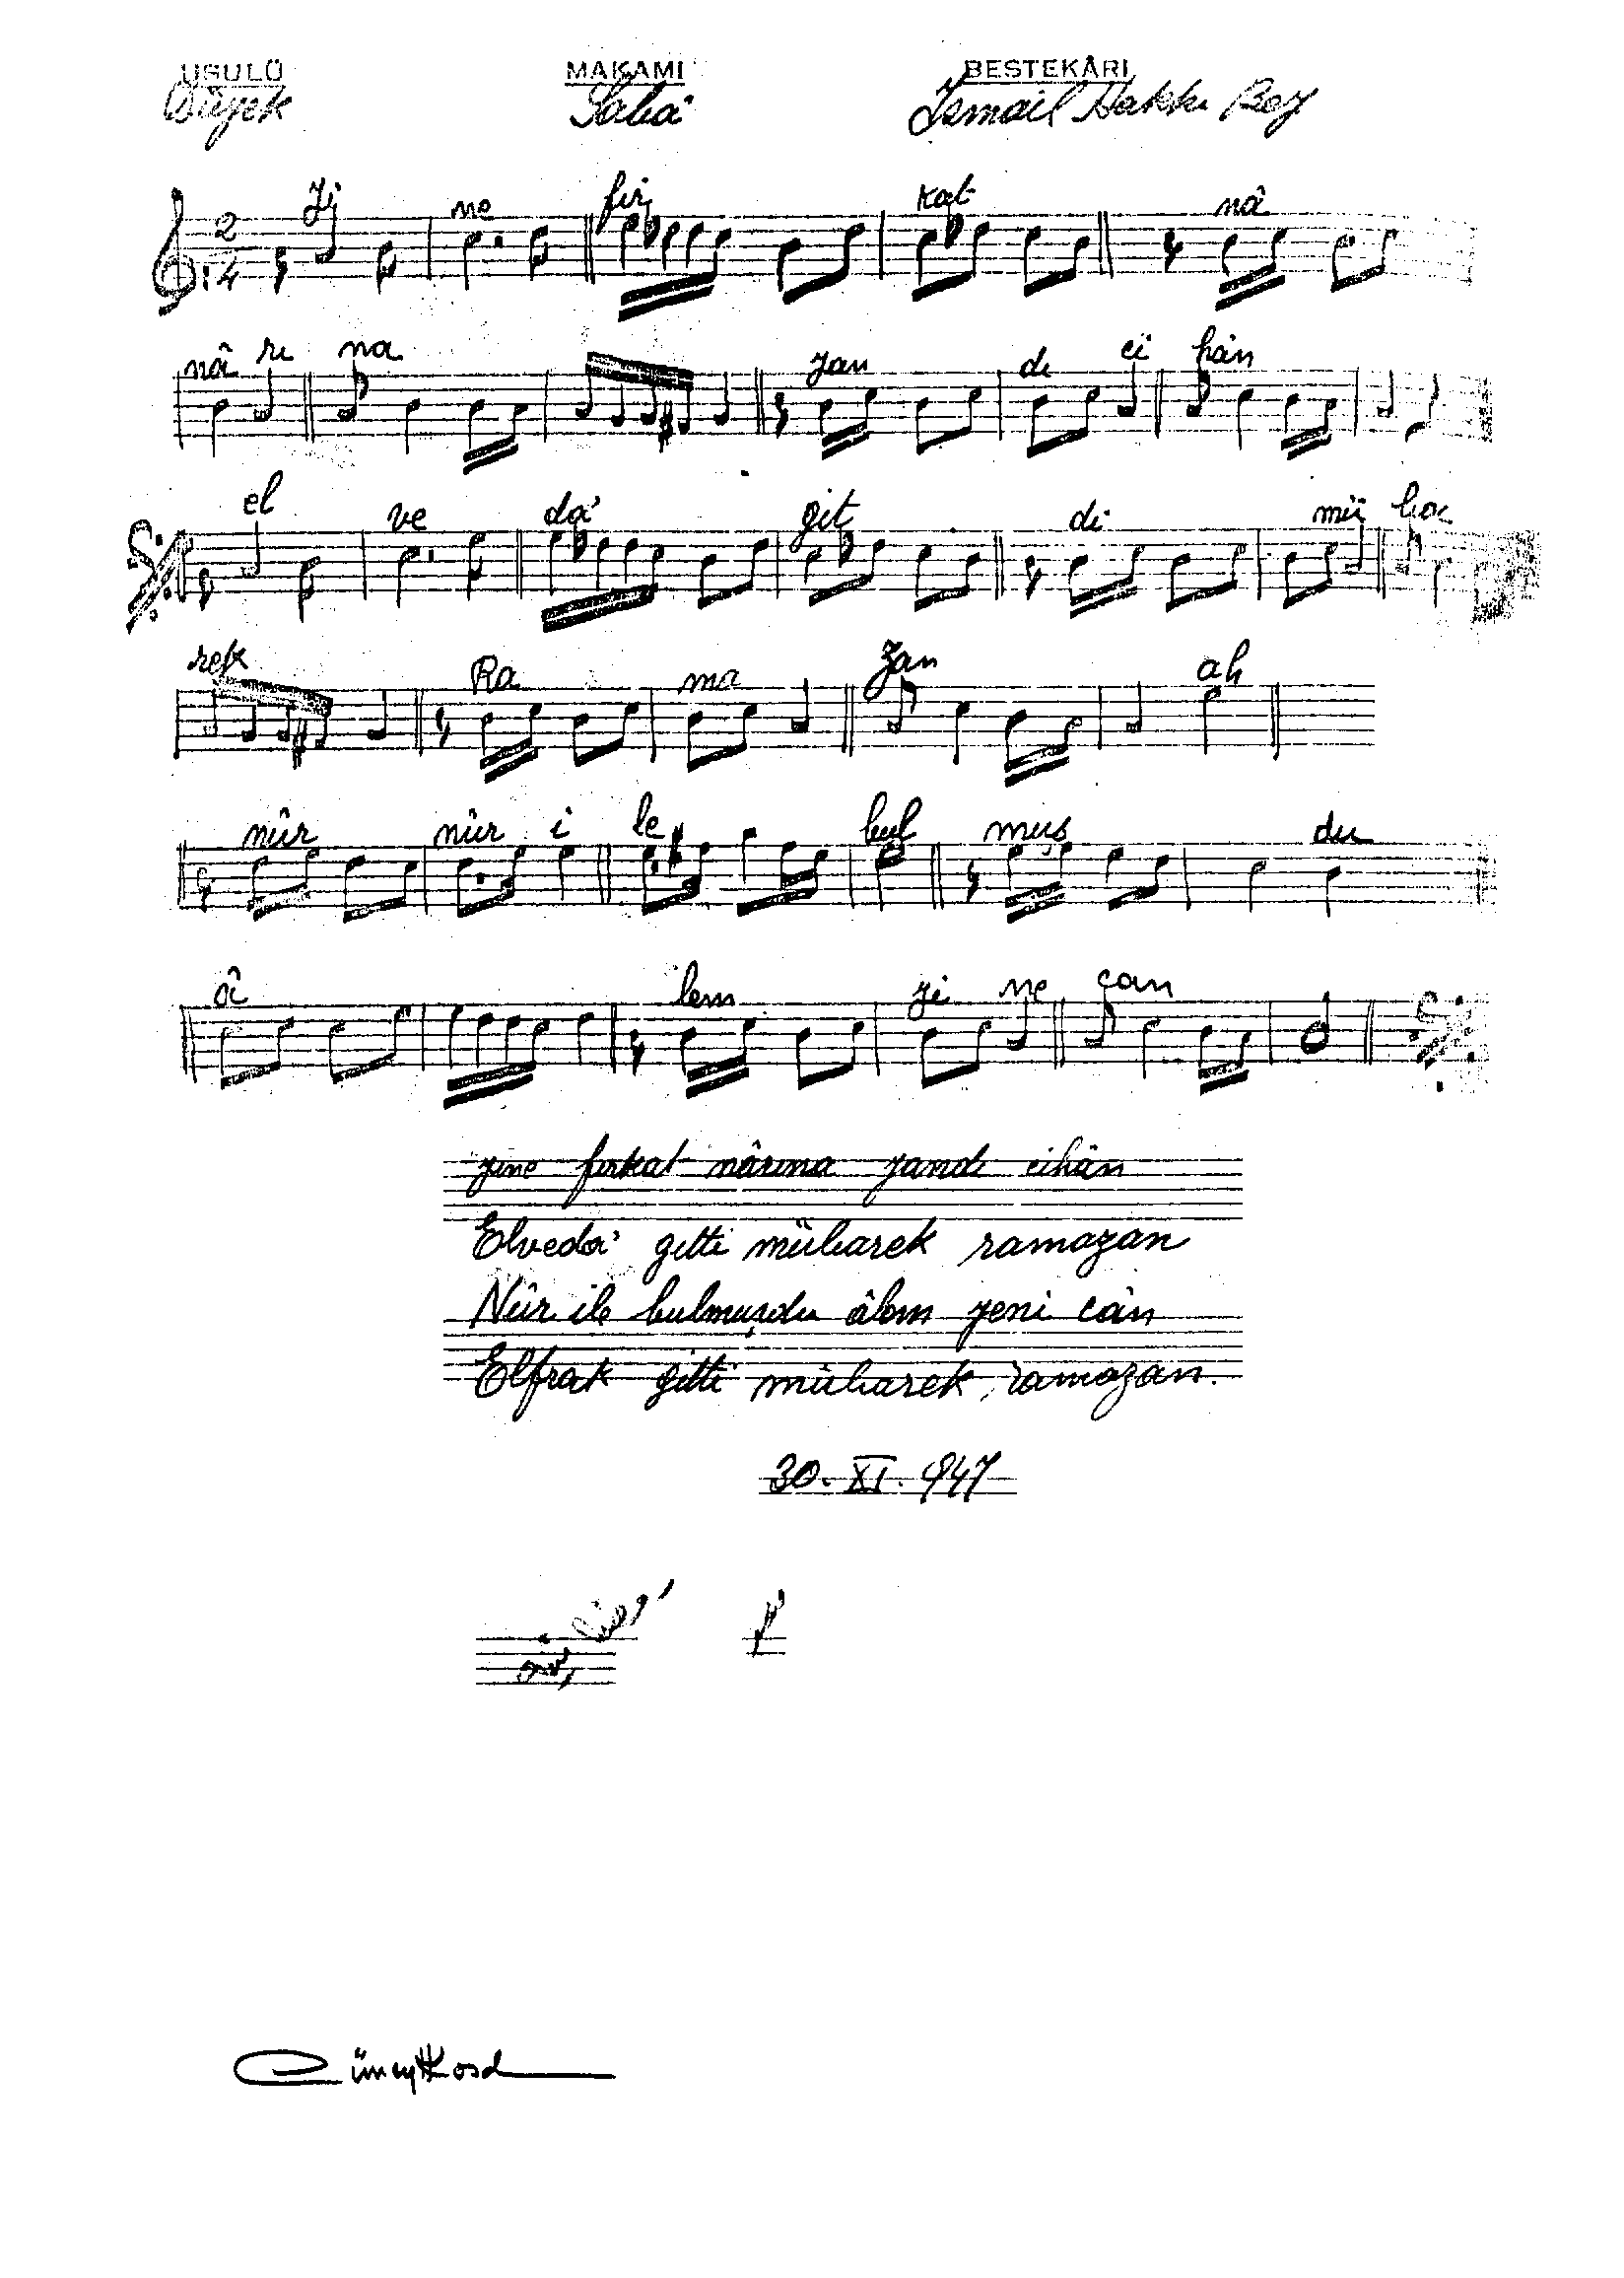 USULÜ MAKAMI BESTEKÂRI
Düyek Sabâ İsmail Hakkı Bey
2
4
Yi ne fir kat nâ
nâ rı na yan dı ci hân
el ve dâ' git di mü ba
rek Ra ma zan ah
nûr nûr i le bul muş du
â lem yi ne can
yine firkat nârına yandı cihân
Elvedâ' gitti mübarek ramazan
Nûr ile bulmuşdu âlem yeni cân
Elfrak gitti mübarek ramazan.
30. XI. 947
Cüneyt Kosal